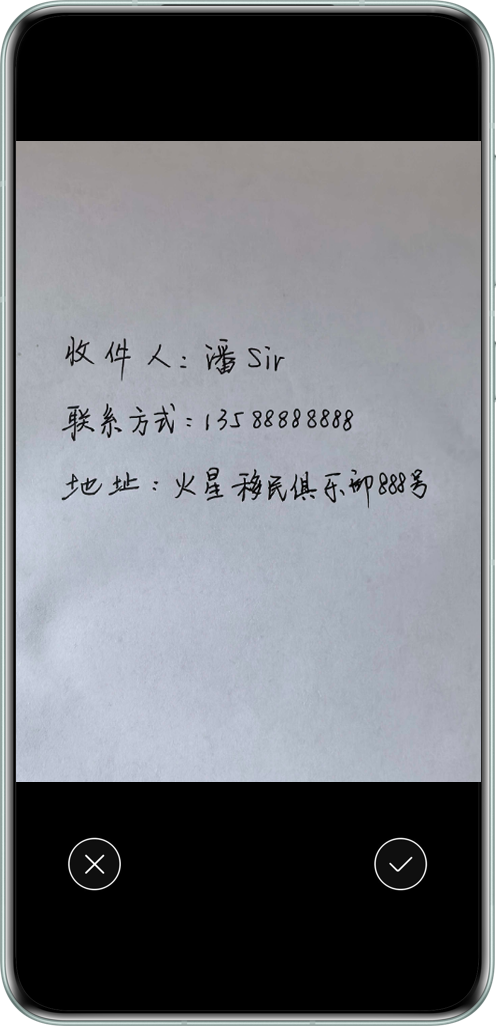 收件人：潘Sir
联系方式：13588888888
地址：火星移民俱乐部888号